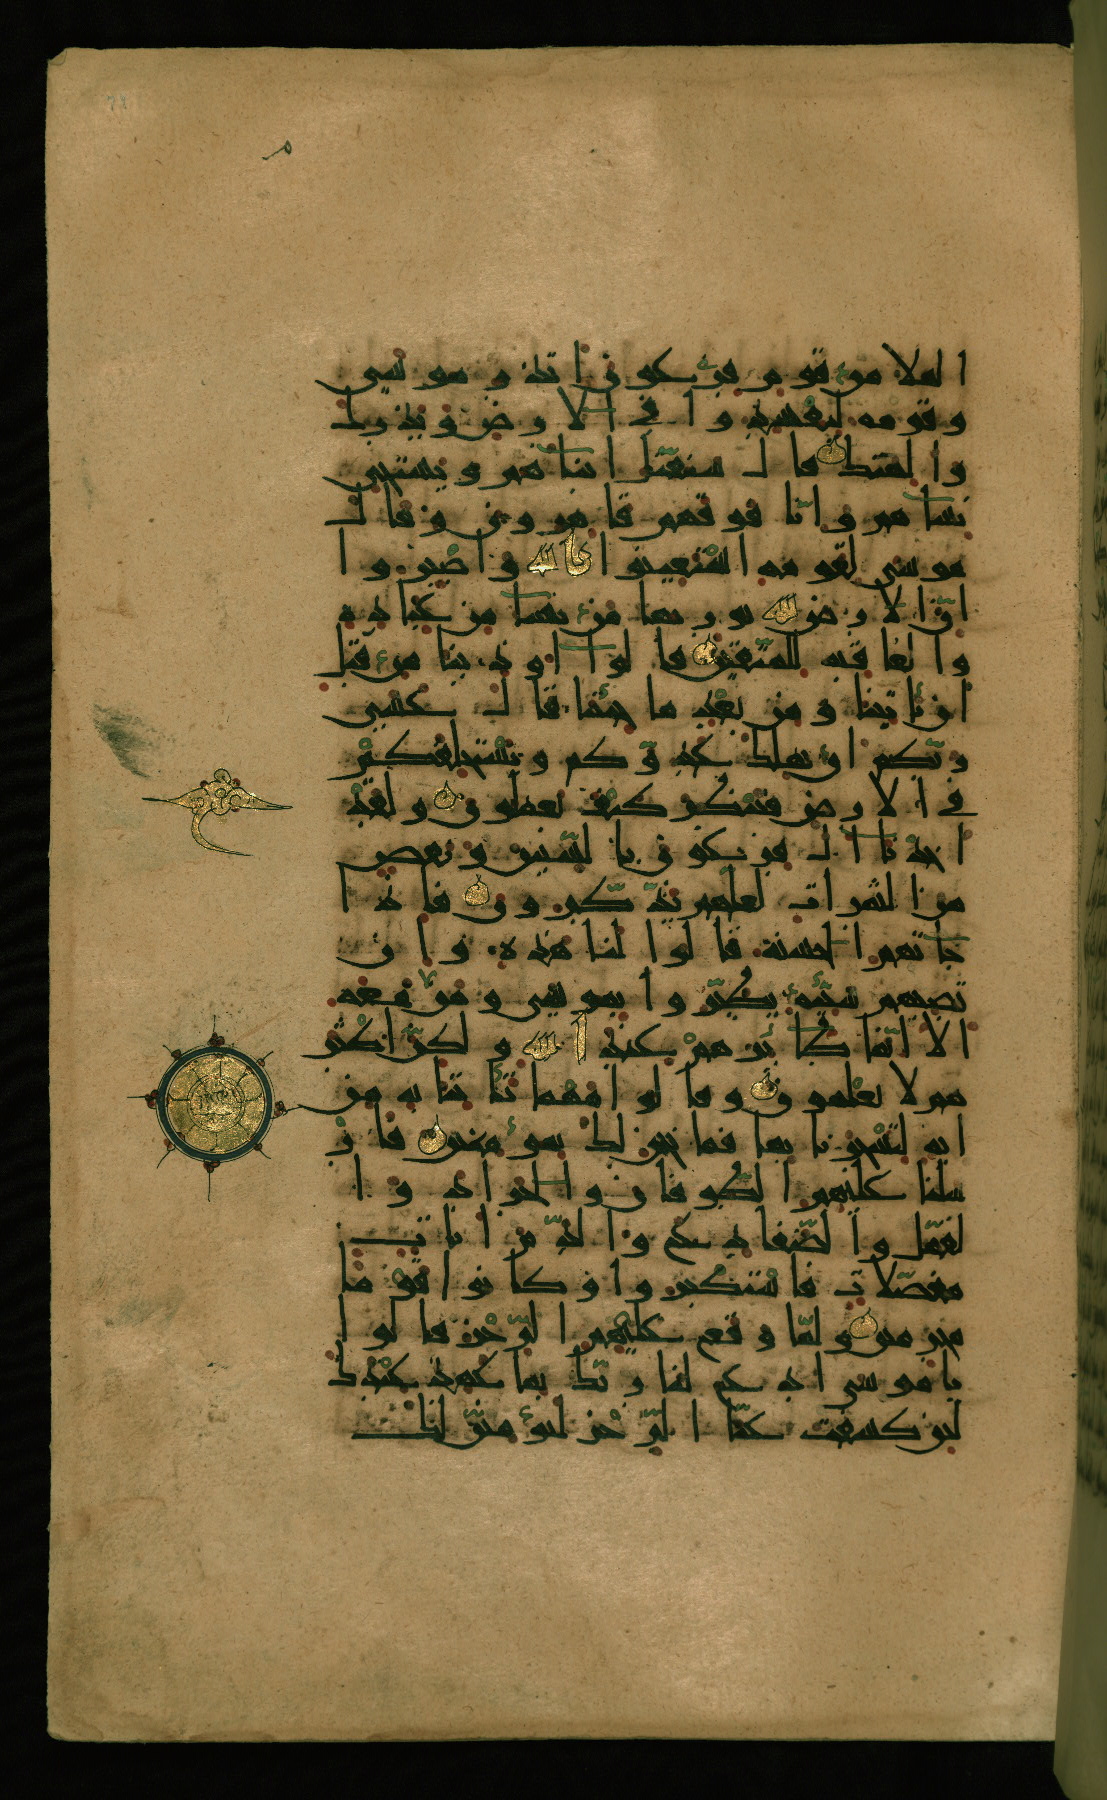 الملا من قوم فرعون اتذر موسى
وقومه ليفسدوا في الارض ويذرك
والهتك قال سنقتل ابناهم ونستحيى
نساهم وانا فوقهم قاهرون وقال
موسى لقومه استعينوا بالله واصبروا
ان الارض لله يورثها من يشا من عباده
والعاقبة للمتقين قالوا اوذينا من قبل
ان تاتينا ومن بعد ما جئتنا قال عسى
ربكم ان يهلك عدوكم ويستخلفكم
في الارض فينظر كيف تعملون ولقد
اخذنا ال فرعون بالسنين ونقص
من الثمرات لعلهم يذكرون فاذا
جاتهم الحسنة قالوا لنا هذه وان
تصبهم سيئة يطيروا بموسى ومن معه
الا انما طائرهم عند الله ولكن اكثر
هم لا يعلمون وقالوا مهما تاتنا به من
اية لتسحرنا بها فما نحن لك بمومنين فار
سلنا عليهم الطوفان والجراد وا
لقمل والضفادع والدم ايات
مفصلات فاستكبروا وكانوا قوما
مجرمين ولما وقع عليهم الرجز قالوا
يا موسى ادع لنا ربك بما عهد عندك
لين كشفت عنا الرجز لنومنن لك